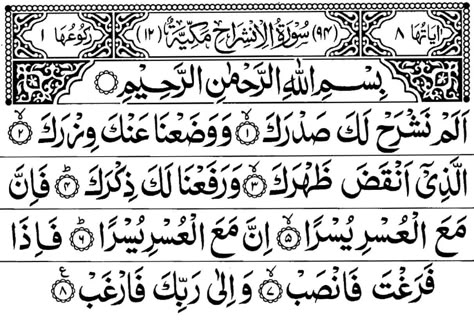 اٰيَاتُهَا ٨ (٩٤) سُوْرَةُ الْاِنْشِرَاحِ مَكِّيَّةٌ (١٢) رُكُوْعُهَا ١
بِسْمِ اللّٰهِ الرَّحْمٰنِ الرَّحِيْمِ
اَلَمْ نَشْرَحْ لَكَ صَدْرَكَ ۙ‏﴿١﴾ وَوَضَعْنَا عَنْكَ وِزْرَكَ ۙ‏﴿٢﴾
الَّذِيْۤ اَنْقَضَ ظَهْرَكَ ۙ‏﴿٣﴾ وَرَفَعْنَا لَكَ ذِكْرَكَ ؕ‏﴿٤﴾ فَاِنَّ
مَعَ الْعُسْرِ يُسْرًا ۙ‏﴿٥﴾ اِنَّ مَعَ الْعُسْرِ يُسْرًا ؕ‏﴿٦﴾ فَاِذَا
فَرَغْتَ فَانْصَبْ ۙ‏﴿٧﴾ وَاِلٰى رَبِّكَ فَارْغَبْ ‏﴿٨﴾ ع